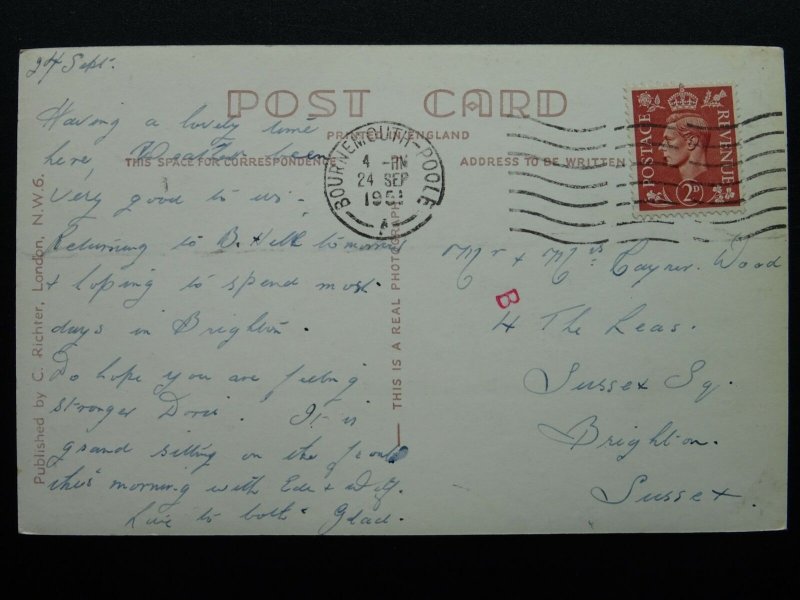 24 Sept.
POST CARD
PRINTED IN ENGLAND
THIS SPACE FOR CORRESPONDENCE
ADDRESS TO BE WRITTEN
Having a lovely time
here, Weather been
very good to us -
Returning to B. Hill tomorrow
+ hoping to spend most
days in Brighton.
Do hope you are feeling
stronger Doris. It is
grand sitting on the front
this morning with Ede +
Love to both Glad.
Published by C. Richter, London, N.W.6.
THIS IS A REAL PHOTOGRAPH
BOURNEMOUTH-POOLE
4 - PM
24 SEP
1951
A
POSTAGE REVENUE
2D
Mr + Mrs Wood
B
4 The Leas.
Sussex Sq.
Brighton.
Sussex.